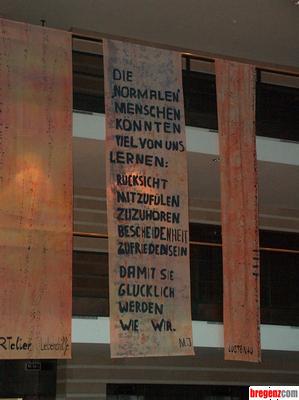 DIE
„NORMALEN"
MENSCHEN
KÖNNTEN
VIEL VON UNS
LERNEN:
RÜCKSICHT
MITZUFÜLEN
ZUZUHÖREN
BESCHEIDENHEIT
ZUFRIEDENSEIN
DAMIT SIE
GLÜCKLICH
WERDEN
WIE WIR.
M.J
ARTelier Lebenshilfe
LUSTENAU
bregenz.com